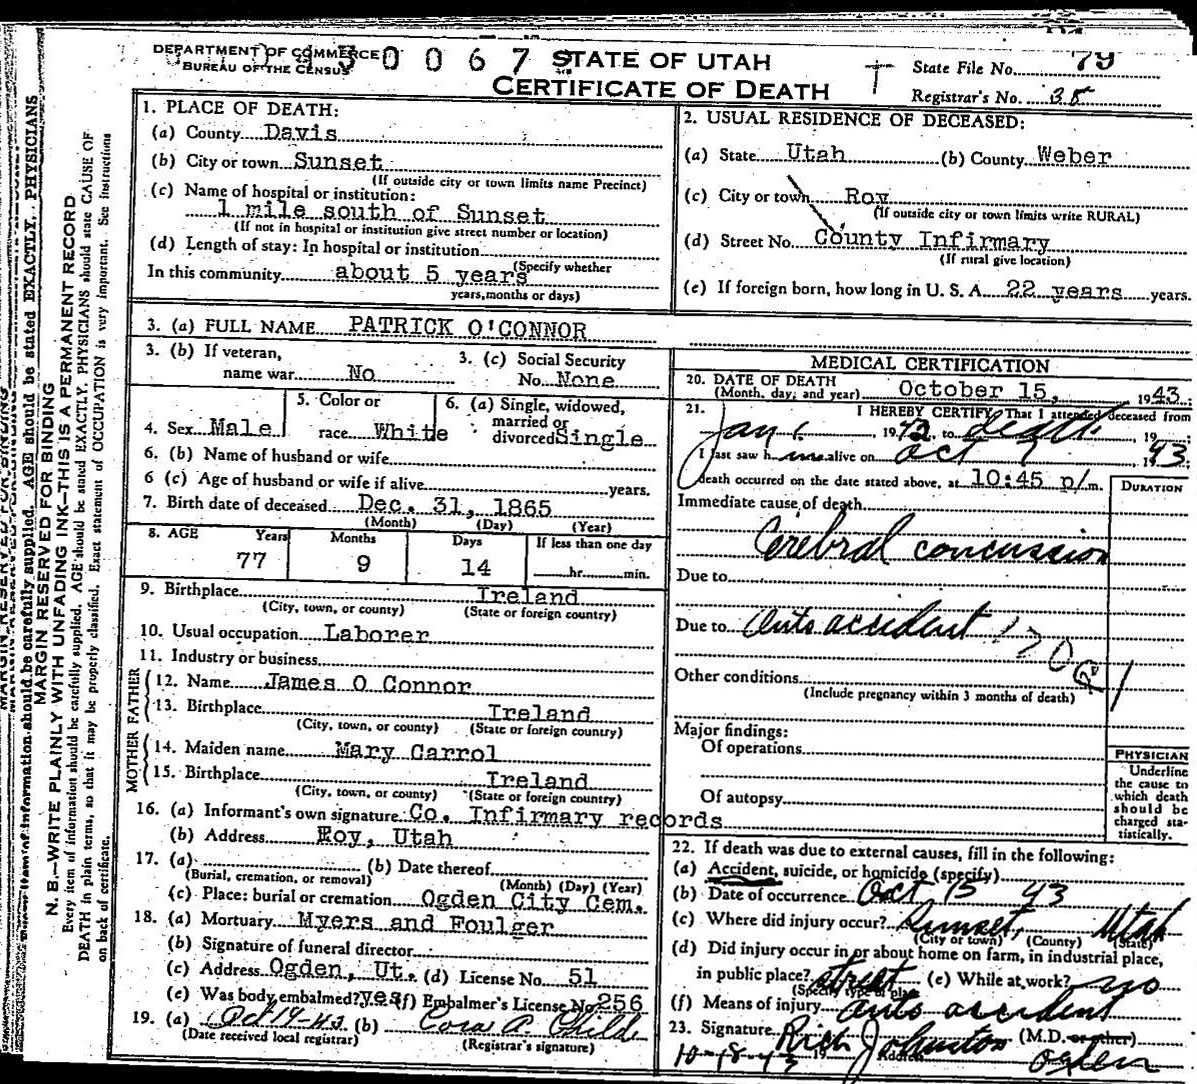 DEPARTMENT OF COMMERCE
BUREAU OF THE CENSUS
0 0 6 7
STATE OF UTAH
CERTIFICATE OF DEATH
State File No. 79
Registrar's No. 35
MARGIN RESERVED FOR BINDING
N. B.—WRITE PLAINLY WITH UNFADING INK—THIS IS A PERMANENT RECORD
Every item of information should be carefully supplied. AGE should be stated EXACTLY. PHYSICIANS should state CAUSE OF
DEATH in plain terms, so that it may be properly classified. Exact statement of OCCUPATION is very important. See instructions
on back of certificate.
1. PLACE OF DEATH:
(a) County Davis
(b) City or town Sunset
(If outside city or town limits name Precinct)
(c) Name of hospital or institution:
1 mile south of Sunset
(If not in hospital or institution give street number or location)
(d) Length of stay: In hospital or institution
(Specify whether
In this community about 5 years
years, months or days)
2. USUAL RESIDENCE OF DECEASED:
(a) State Utah (b) County Weber
(c) City or town Roy
(If outside city or town limits write RURAL)
(d) Street No. County Infirmary
(If rural give location)
(e) If foreign born, how long in U. S. A. 22 years years.
3. (a) FULL NAME PATRICK O'CONNOR
3. (b) If veteran, name war No
3. (c) Social Security No. None
4. Sex Male
5. Color or race White
6. (a) Single, widowed, married or divorced Single
6. (b) Name of husband or wife
6 (c) Age of husband or wife if alive years.
7. Birth date of deceased Dec. 31, 1865
(Month) (Day) (Year)
8. AGE Years Months Days If less than one day
77 9 14 hr. min.
9. Birthplace Ireland
(City, town, or county) (State or foreign country)
10. Usual occupation Laborer
11. Industry or business
FATHER
12. Name James O Connor
13. Birthplace Ireland
(City, town, or county) (State or foreign country)
MOTHER
14. Maiden name Mary Carrol
15. Birthplace Ireland
(City, town, or county) (State or foreign country)
16. (a) Informant's own signature Co. Infirmary records
(b) Address Roy, Utah
17. (a) (b) Date thereof
(Burial, cremation, or removal) (Month) (Day) (Year)
(c) Place: burial or cremation Ogden City Cem.
18. (a) Mortuary Myers and Foulger
(b) Signature of funeral director
(c) Address Ogden, Ut. (d) License No. 51
(e) Was body embalmed? yes (f) Embalmer's License No. 256
19. (a) Oct 19-43 (b) Cora A Childs
(Date received local registrar) (Registrar's signature)
MEDICAL CERTIFICATION
20. DATE OF DEATH
(Month, day, and year) October 15, 1943.
21. I HEREBY CERTIFY, That I attended deceased from
Jan 1. 1942, to death, 19
I last saw him alive on Oct 7 1943.
death occurred on the date stated above, at 10:45 p/m.
DURATION
Immediate cause of death
Cerebral concussion
Due to
Due to Auto accident
Other conditions
(Include pregnancy within 3 months of death)
Major findings:
Of operations
Of autopsy
PHYSICIAN
Underline
the cause to
which death
should be
charged sta-
tistically.
22. If death was due to external causes, fill in the following:
(a) Accident, suicide, or homicide (specify)
(b) Date of occurrence Oct 15 43
(c) Where did injury occur? Sunset, Utah
(City or town) (County) (State)
(d) Did injury occur in or about home on farm, in industrial place,
in public place? street (e) While at work? no
(Specify type of place)
(f) Means of injury Auto accident
23. Signature Rich Johnston (M.D. or other)
10-18-43 19 Address Ogden